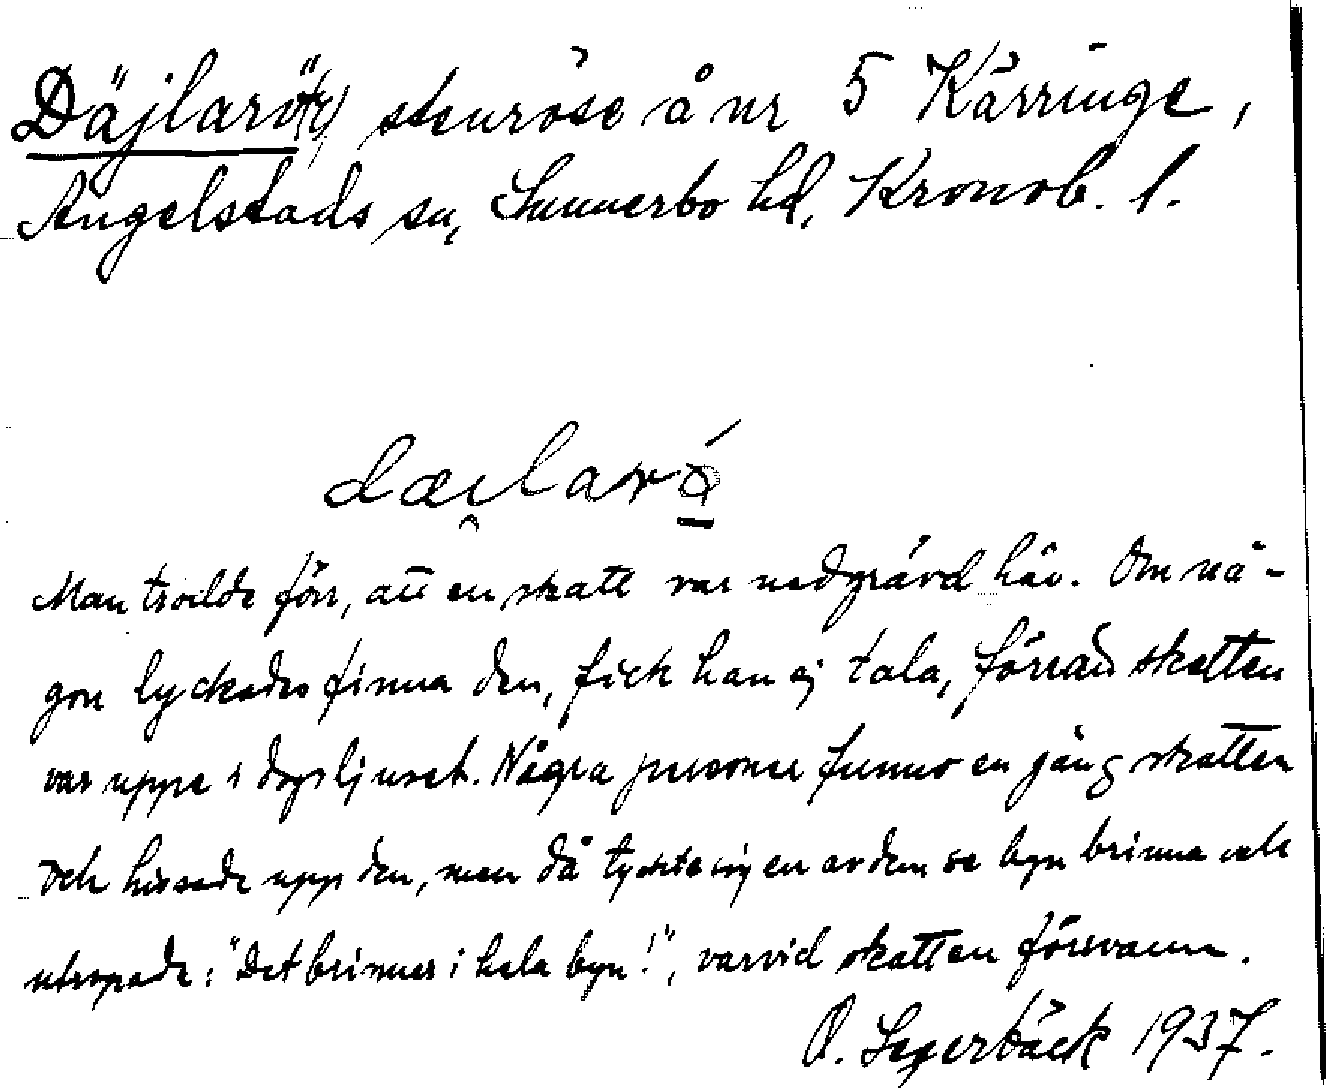 Däjlarö(s), stenröse å nr 5 Kärringe,
Angelstads sn, Sunnerbo hd, Kronob. l.
dæi̯larǿ
Man trodde förr, att en skatt var nedgrävd här. Om nå-
gon lyckades finna den, fick han ej tala, förrän skatten
var uppe i dagsljuset. Några personer funno en gång skatten
och hissade upp den, men då tyckte sig en av dem se byn brinna och
utropade: "Det brinner i hela byn!", varvid skatten försvann.
P. Segerbäck 1937.